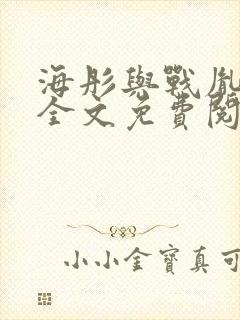 海彤與戰胤
全文免費閱
小小金寶真可